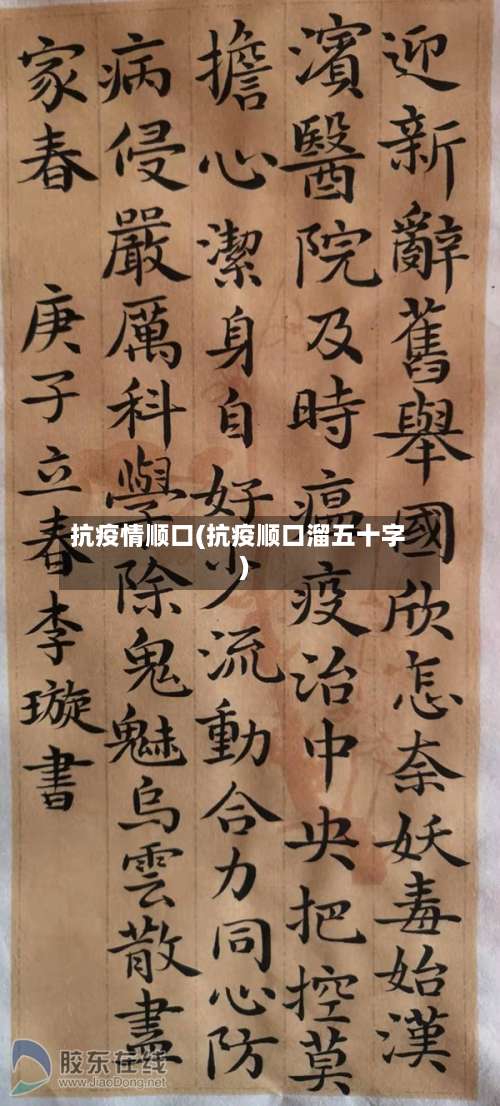 迎新辭舊舉國欣怎奈妖毒始漢
濱醫院及時瘟疫治中央把控莫
擔心潔身自好少流動合力同心防
病侵嚴厲科學除鬼魅烏雲散盡
家春 庚子立春李璇書
抗疫情顺口(抗疫顺口溜五十字
)
胶东在线
www.JiaoDong.net